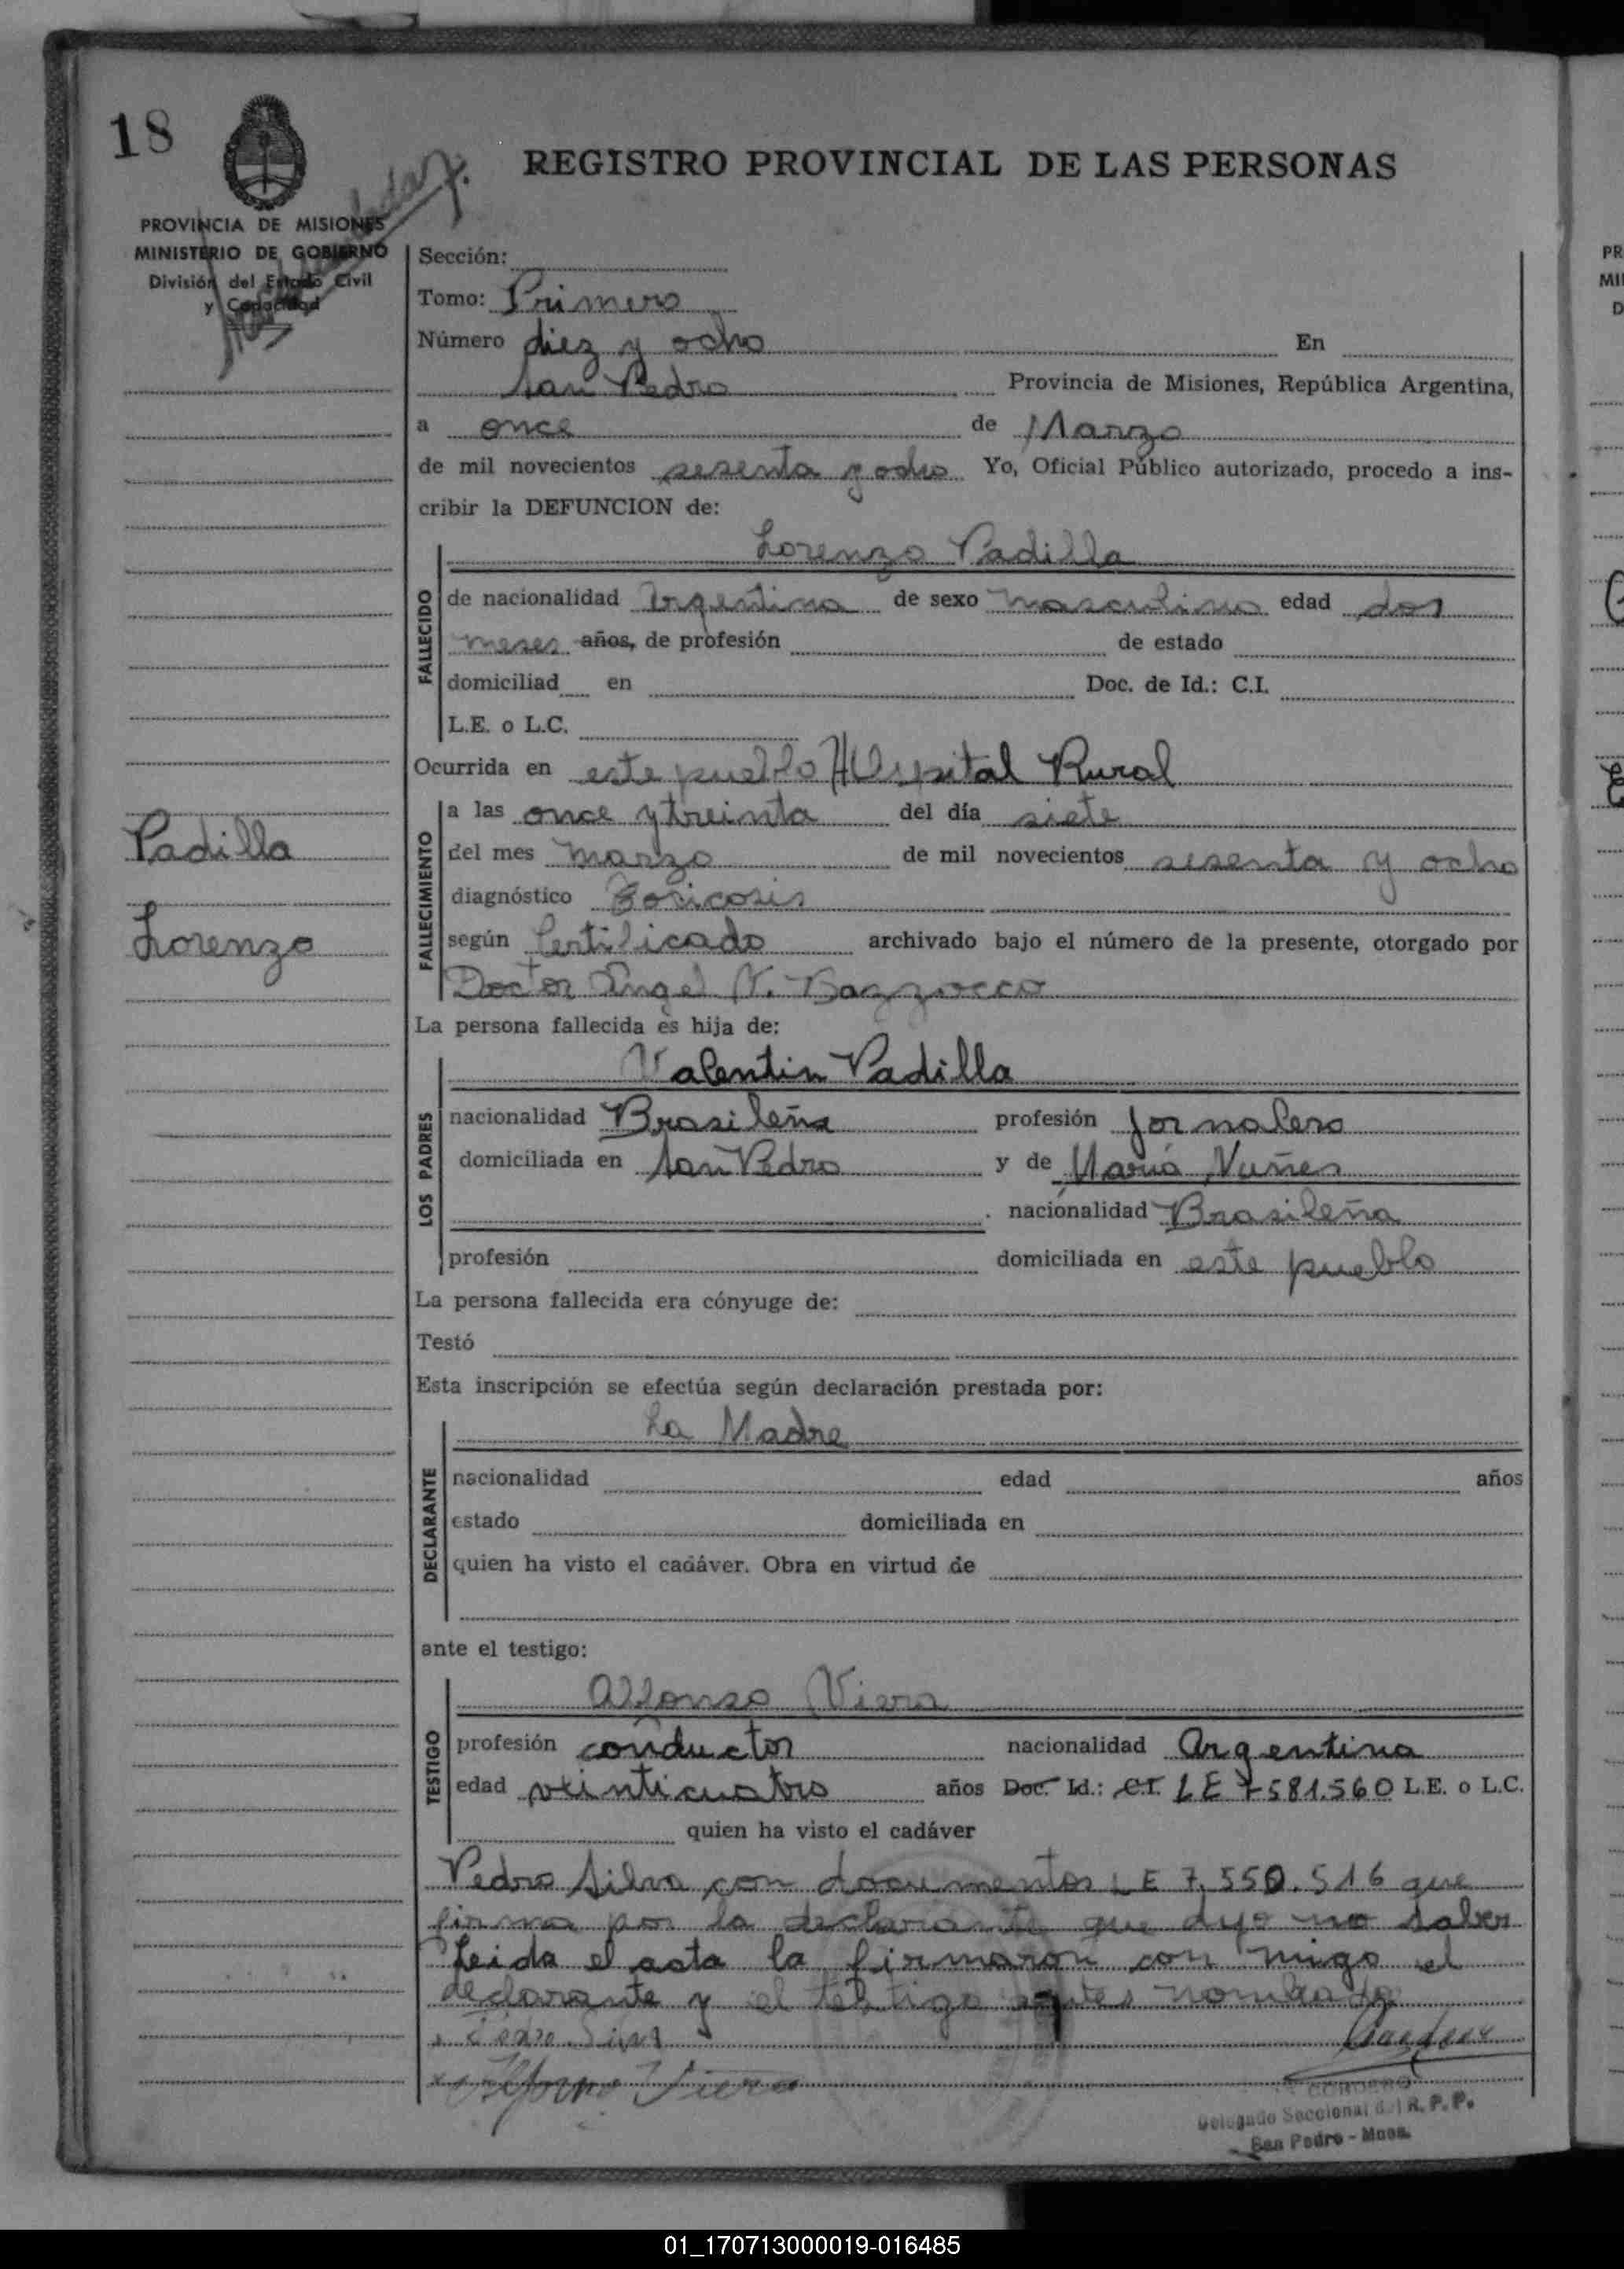 18
REGISTRO PROVINCIAL DE LAS PERSONAS
PROVINCIA DE MISIONES
MINISTERIO DE GOBIERNO
División del Estado Civil
y Capacidad
Sección:
Tomo: Primero
Número diez y ocho En
San Pedro Provincia de Misiones, República Argentina,
a once de Marzo
de mil novecientos sesenta y ocho Yo, Oficial Público autorizado, procedo a ins-
cribir la DEFUNCION de:
Lorenzo Padilla
FALLECIDO
de nacionalidad Argentina de sexo masculino edad dos
meses años, de profesión de estado
domiciliad en Doc. de Id.: C.I.
L.E. o L.C.
Ocurrida en este pueblo Hospital Rural
FALLECIMIENTO
a las once y treinta del día siete
del mes marzo de mil novecientos sesenta y ocho
diagnóstico
según Certificado archivado bajo el número de la presente, otorgado por
Doctor Angel N. Bazzocco
Padilla
Lorenzo
La persona fallecida es hija de:
Valentin Padilla
LOS PADRES
nacionalidad Brasileña profesión Jornalero
domiciliada en San Pedro y de Maria Nuñes
nacionalidad Brasileña
profesión domiciliada en este pueblo
La persona fallecida era cónyuge de:
Testó
Esta inscripción se efectúa según declaración prestada por:
La Madre
DECLARANTE
nacionalidad edad años
estado domiciliada en
quien ha visto el cadáver. Obra en virtud de
ante el testigo:
Alfonso Viera
TESTIGO
profesión conductor nacionalidad Argentina
edad veinticuatro años Doc. Id.: C.I. LE 7581.560 L.E. o L.C.
quien ha visto el cadáver
Pedro Silva con documentos LE 7.550.516 que
firma por la declarante que dijo no saber
Leida el acta la firmaron con migo el
declarante y el testigo antes nombrado
Pedro Silva
Alfonso Viera
CORDERO
Delegado Seccional del R. P. P.
San Pedro - Mnes.
01_170713000019-016485